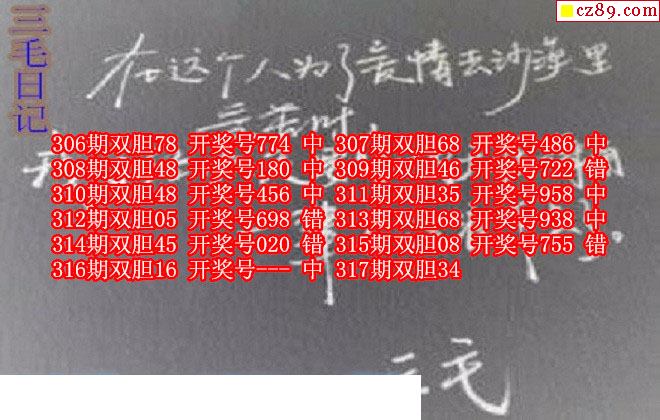 cz89.com
三毛日记
在这个人为了爱情去沙漠里
306期双胆78 开奖号774 中 307期双胆68 开奖号486 中
308期双胆48 开奖号180 中 309期双胆46 开奖号722 错
310期双胆48 开奖号456 中 311期双胆35 开奖号958 中
312期双胆05 开奖号698 错 313期双胆68 开奖号938 中
314期双胆45 开奖号020 错 315期双胆08 开奖号755 错
316期双胆16 开奖号--- 中 317期双胆34
三毛